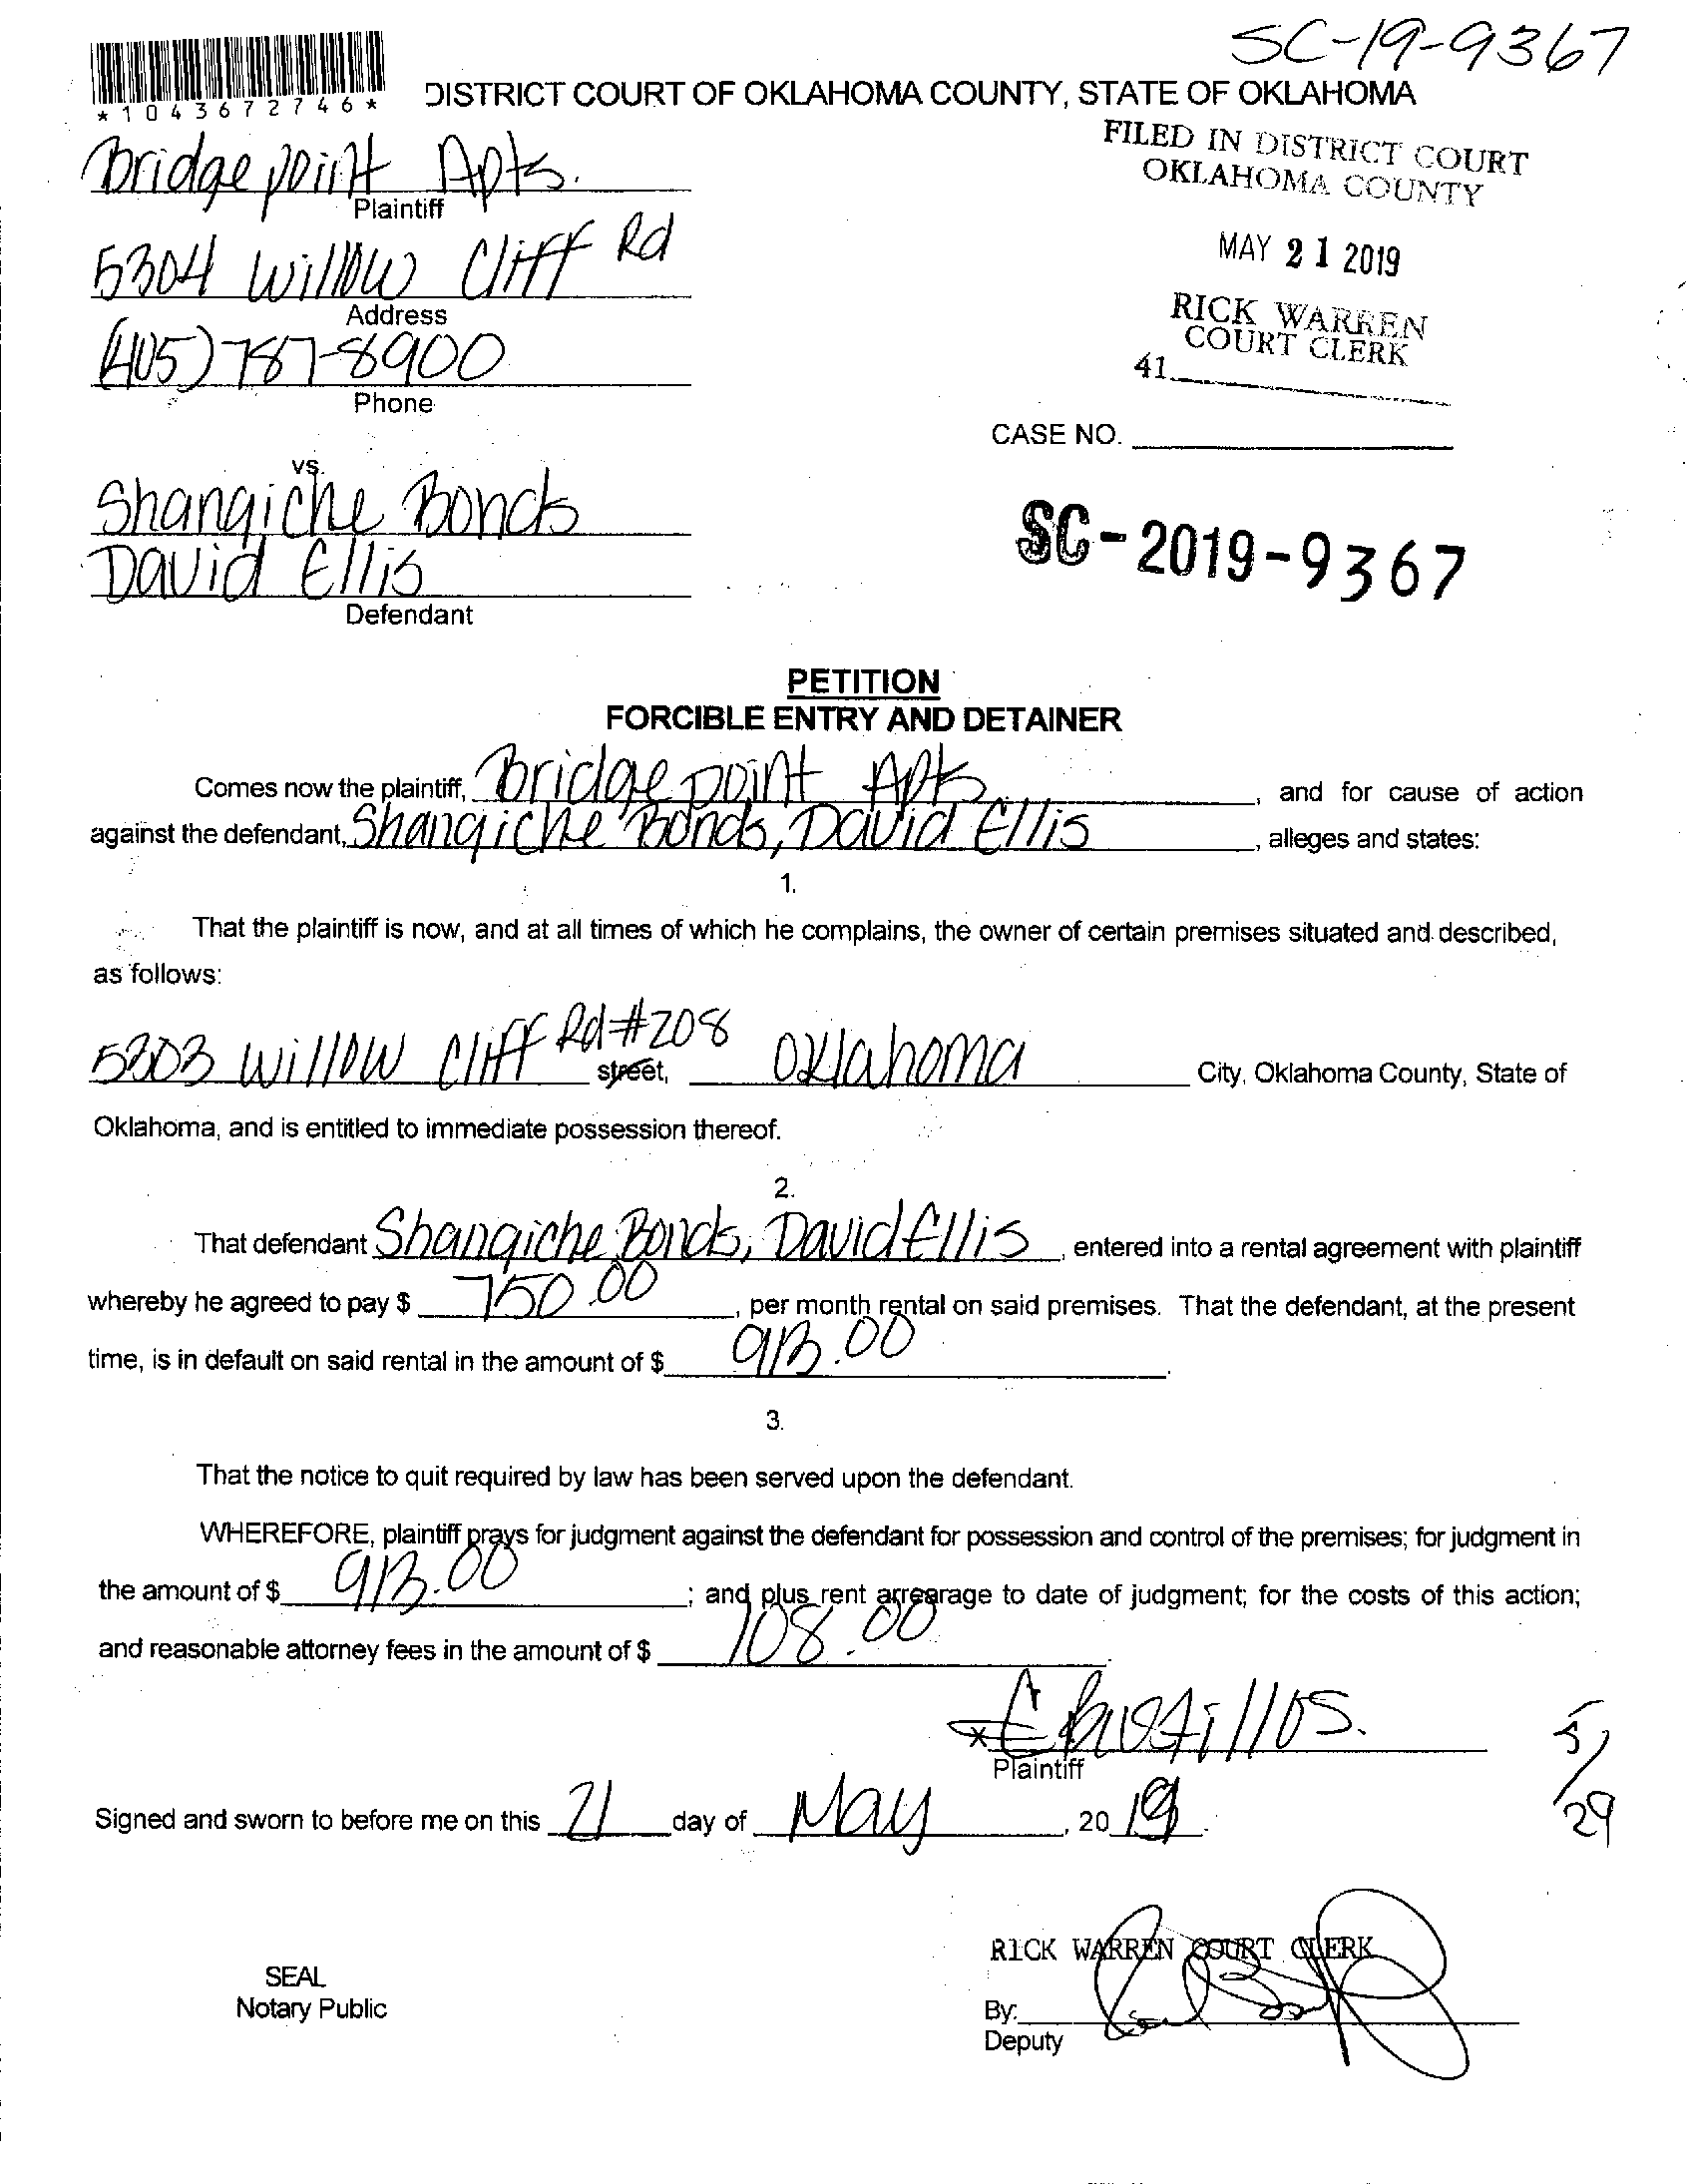 SC-19-9367
*1043672746*
DISTRICT COURT OF OKLAHOMA COUNTY, STATE OF OKLAHOMA
FILED IN DISTRICT COURT
OKLAHOMA COUNTY
MAY 21 2019
RICK WARREN
COURT CLERK
41
Bridgepoint Apts.
Plaintiff
5304 Willow Cliff Rd
Address
(405) 787-8900
Phone
CASE NO.
vs.
Shangiche Bonds
David Ellis
Defendant
SC-2019-9367
PETITION
FORCIBLE ENTRY AND DETAINER
Comes now the plaintiff, Bridgepoint Apts, and for cause of action
against the defendant, Shangiche Bonds, David Ellis, alleges and states:
1.
That the plaintiff is now, and at all times of which he complains, the owner of certain premises situated and described,
as follows:
5303 Willow Cliff Rd #208 street, Oklahoma City, Oklahoma County, State of
Oklahoma, and is entitled to immediate possession thereof.
2.
That defendant Shangiche Bonds, David Ellis, entered into a rental agreement with plaintiff
whereby he agreed to pay $ 750.00, per month rental on said premises. That the defendant, at the present
time, is in default on said rental in the amount of $ 913.00.
3.
That the notice to quit required by law has been served upon the defendant.
WHEREFORE, plaintiff prays for judgment against the defendant for possession and control of the premises; for judgment in
the amount of $ 913.00; and plus rent arrearage to date of judgment; for the costs of this action;
and reasonable attorney fees in the amount of $ 108.00.
* Bustillos.
Plaintiff
5/29
Signed and sworn to before me on this 21 day of May, 20 19.
RICK WARREN COURT CLERK
SEAL
Notary Public
By:
Deputy